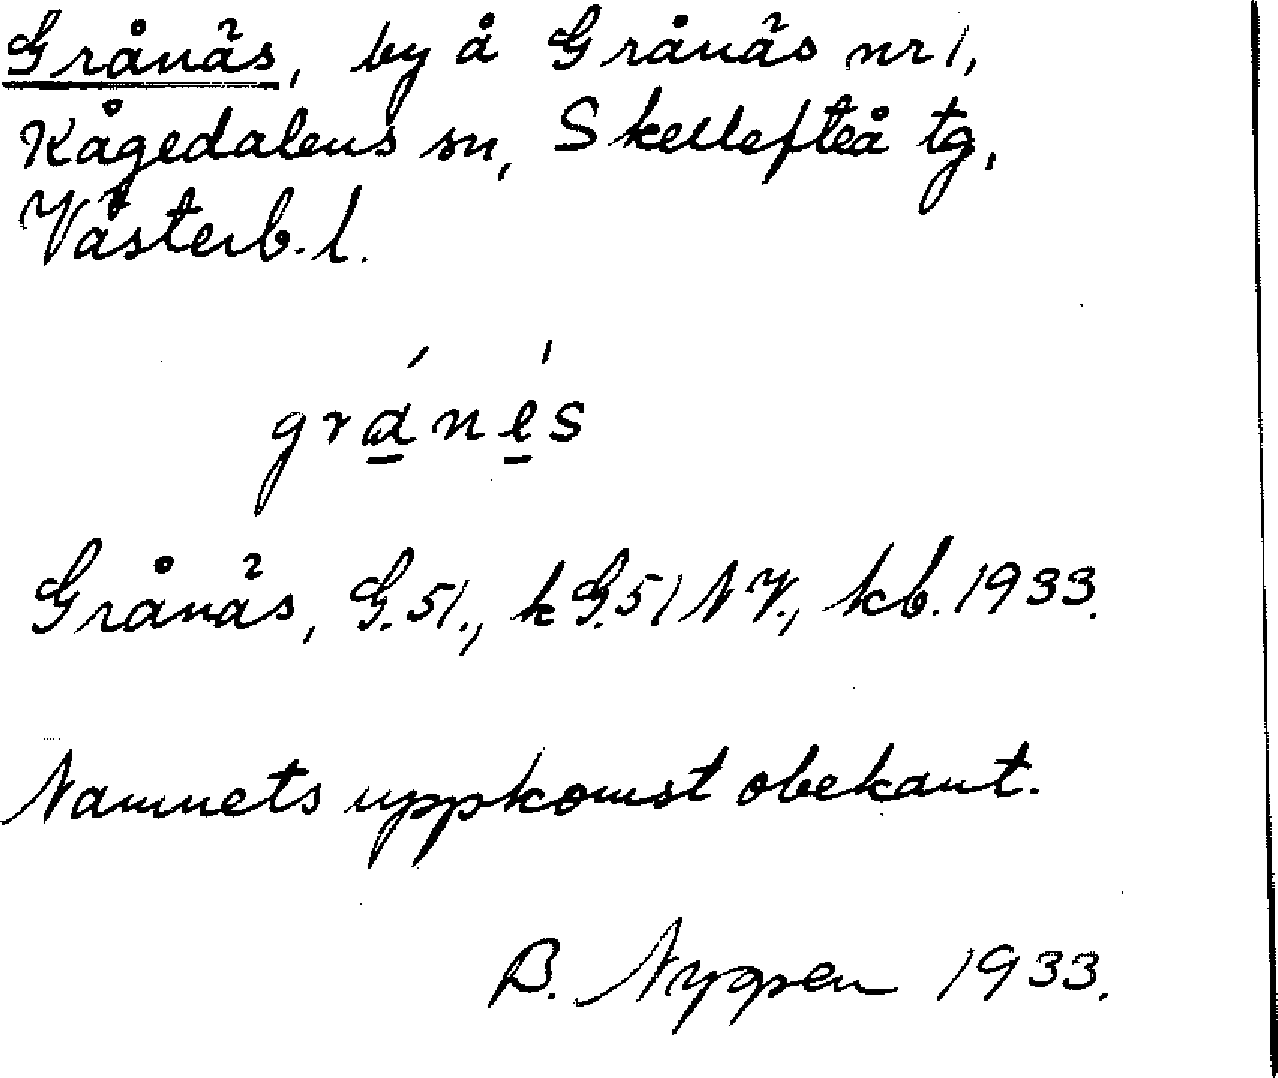 Grånäs, by å Grånäs nr 1,
Kågedalens sn, Skellefteå tg,
Västerb. l.
gránés
Grånäs, G. 51., k G. 51 NV., kb. 1933.
Namnets uppkomst obekant.
B. Nygren 1933.